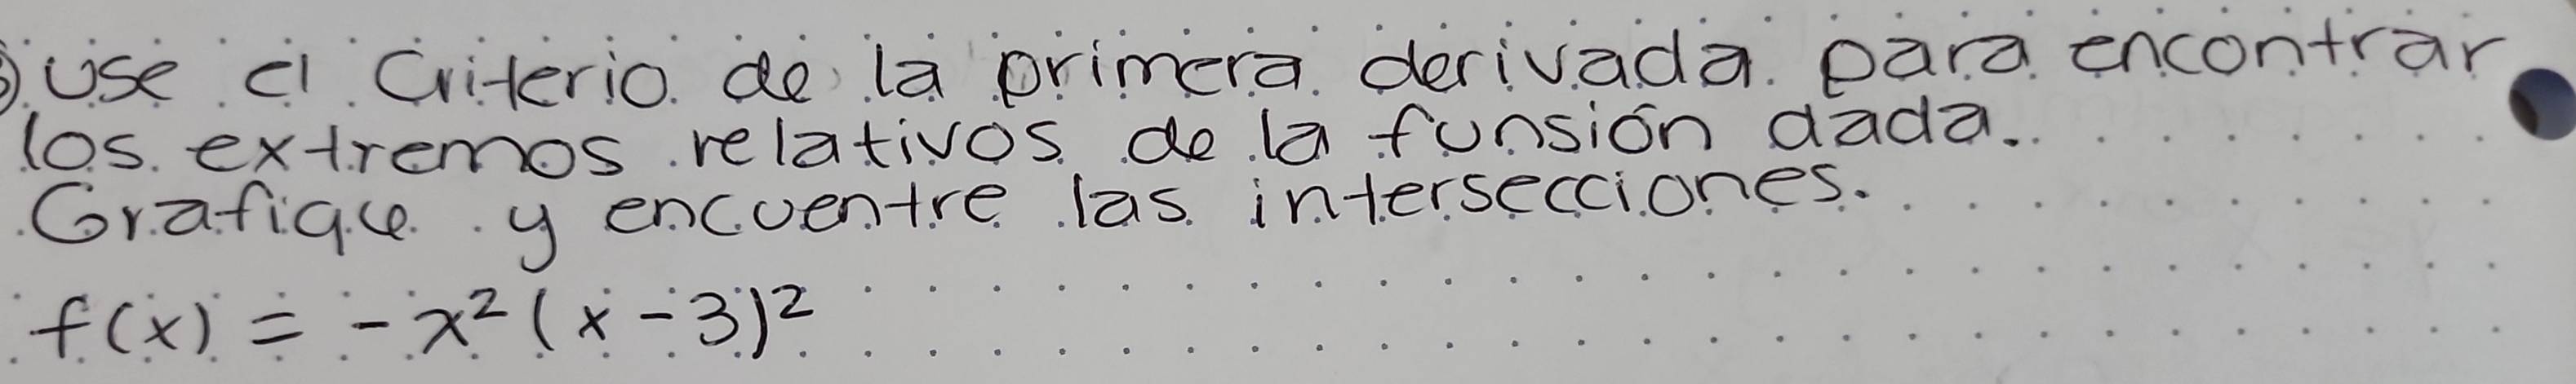 use el Criterio de la primera derivada para encontrar
los extremos relativos de la funsión dada.
Grafique y encuentre las intersecciones.
f(x) = -x²(x-3)²